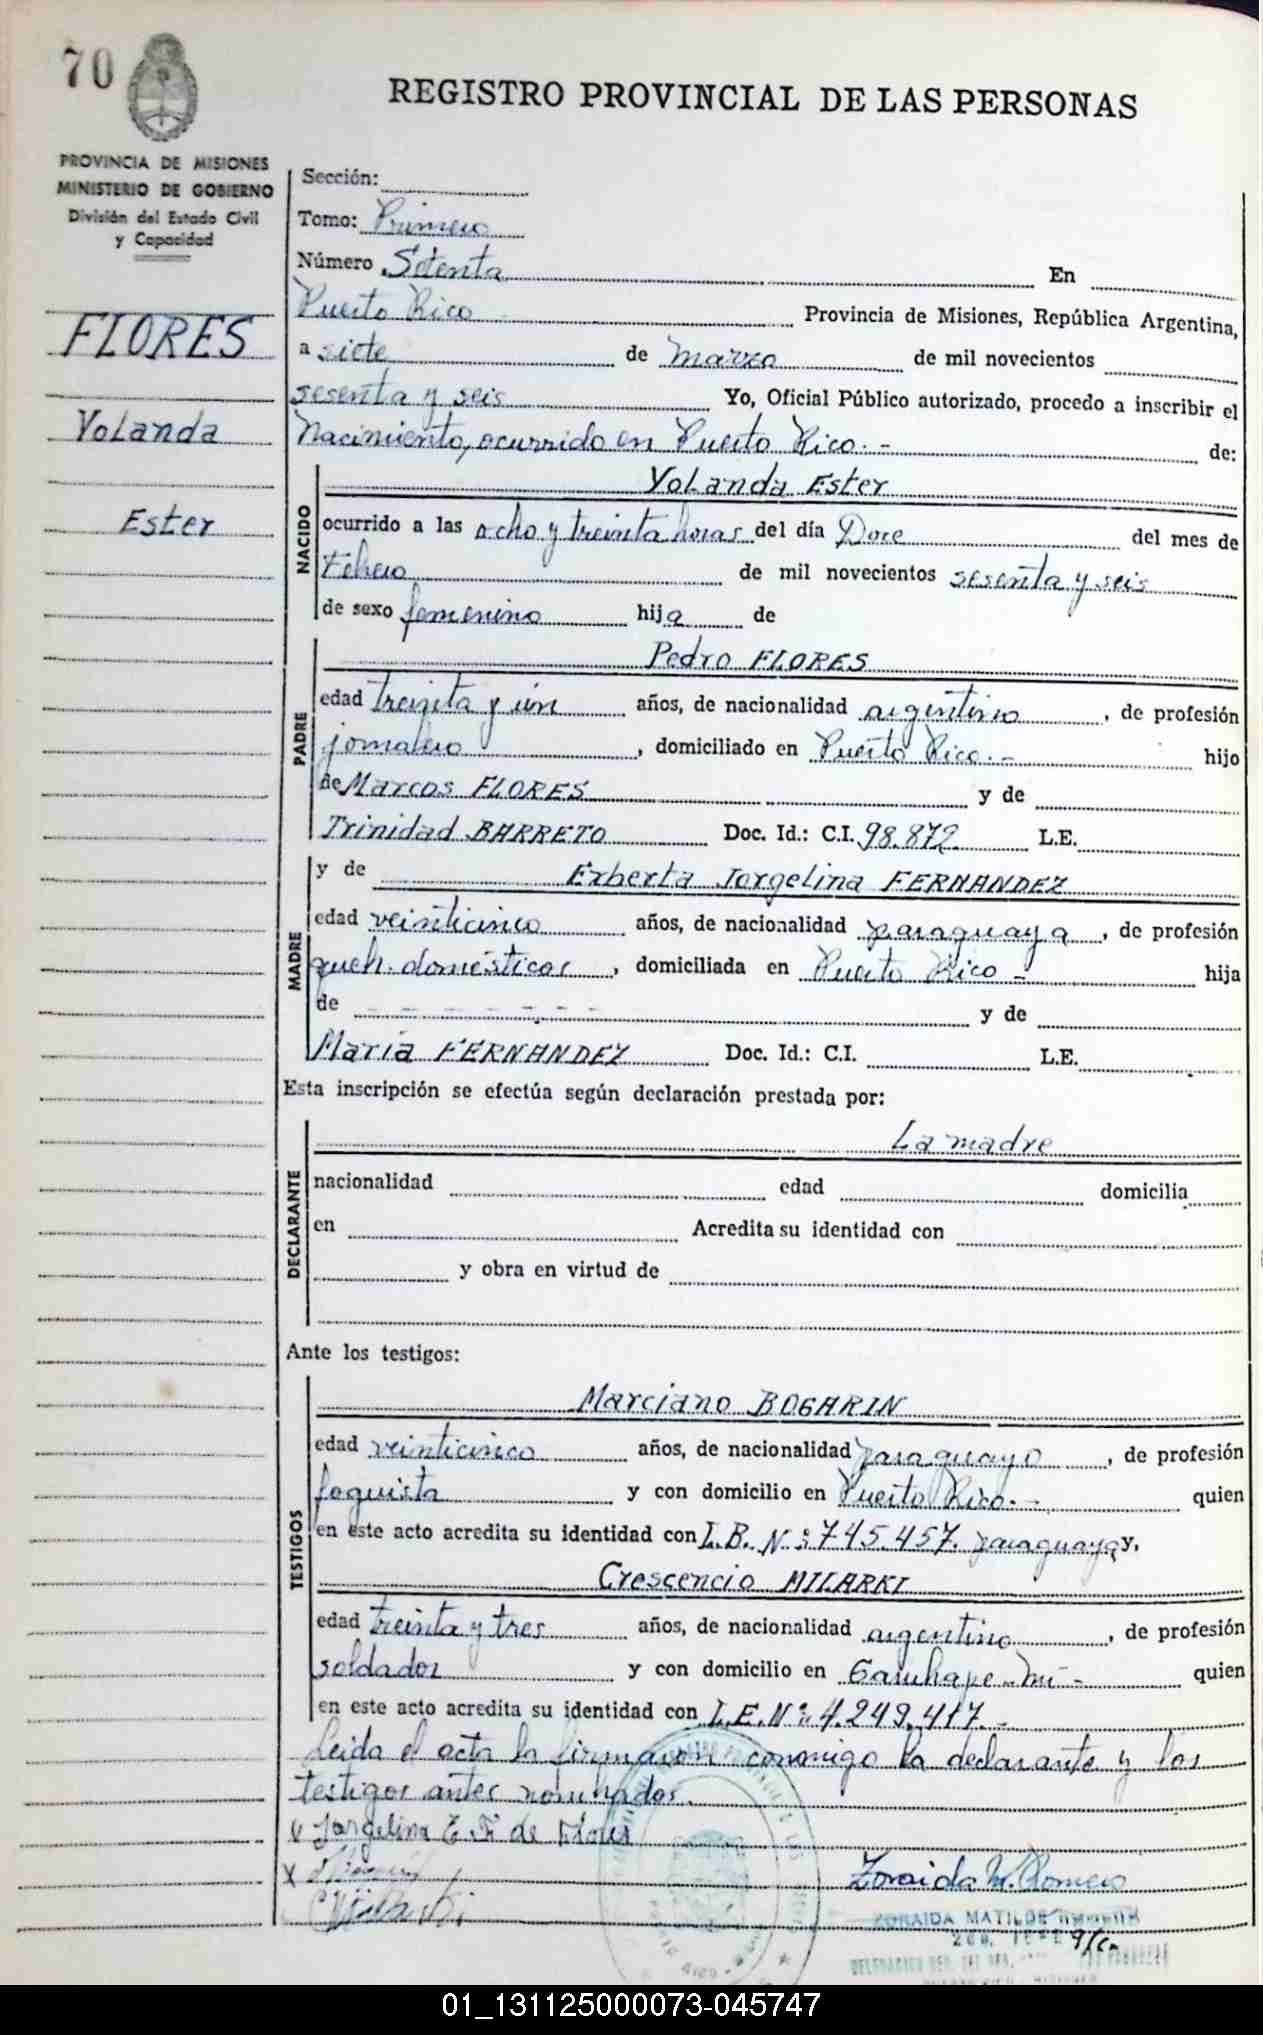 70
REGISTRO PROVINCIAL DE LAS PERSONAS
PROVINCIA DE MISIONES
MINISTERIO DE GOBIERNO
División del Estado Civil
y Capacidad
FLORES
Yolanda
Ester
Sección:
Tomo: Primero
Número Setenta En
Puerto Rico Provincia de Misiones, República Argentina,
a siete de marzo de mil novecientos
sesenta y seis Yo, Oficial Público autorizado, procedo a inscribir el
Nacimiento, ocurrido en Puerto Rico.- de:
NACIDO
Yolanda Ester
ocurrido a las ocho y treinta horas del día Doce del mes de
Febrero de mil novecientos sesenta y seis
de sexo femenino hija de
PADRE
Pedro FLORES
edad treinta y un años, de nacionalidad argentino, de profesión
jornalero, domiciliado en Puerto Rico.- hijo
de Marcos FLORES y de
Trinidad BARRETO Doc. Id.: C.I. 98.872 L.E.
MADRE
y de Erberta Jorgelina FERNANDEZ
edad veinticinco años, de nacionalidad paraguaya, de profesión
queh. domésticos, domiciliada en Puerto Rico - hija
de - - - - - - y de
María FERNANDEZ Doc. Id.: C.I. L.E.
Esta inscripción se efectúa según declaración prestada por:
DECLARANTE
La madre
nacionalidad edad domicilia
en Acredita su identidad con
y obra en virtud de
Ante los testigos:
TESTIGOS
Marciano BOGARIN
edad veinticinco años, de nacionalidad paraguayo, de profesión
foguista y con domicilio en Puerto Rico.- quien
en este acto acredita su identidad con L.B. N.: 745.457. paraguaya y,
Crescencio MILARKI
edad treinta y tres años, de nacionalidad argentino, de profesión
soldador y con domicilio en Garuhape-mi- quien
en este acto acredita su identidad con L.E.Nº: 4.249.417.-
Leida el acta la firmaron conmigo la declarante y los
testigos antes nombrados.
Jorgelina E F de Flores
x
Zoraida M. Romero
ZORAIDA MATILDE ROMERO
01_131125000073-045747